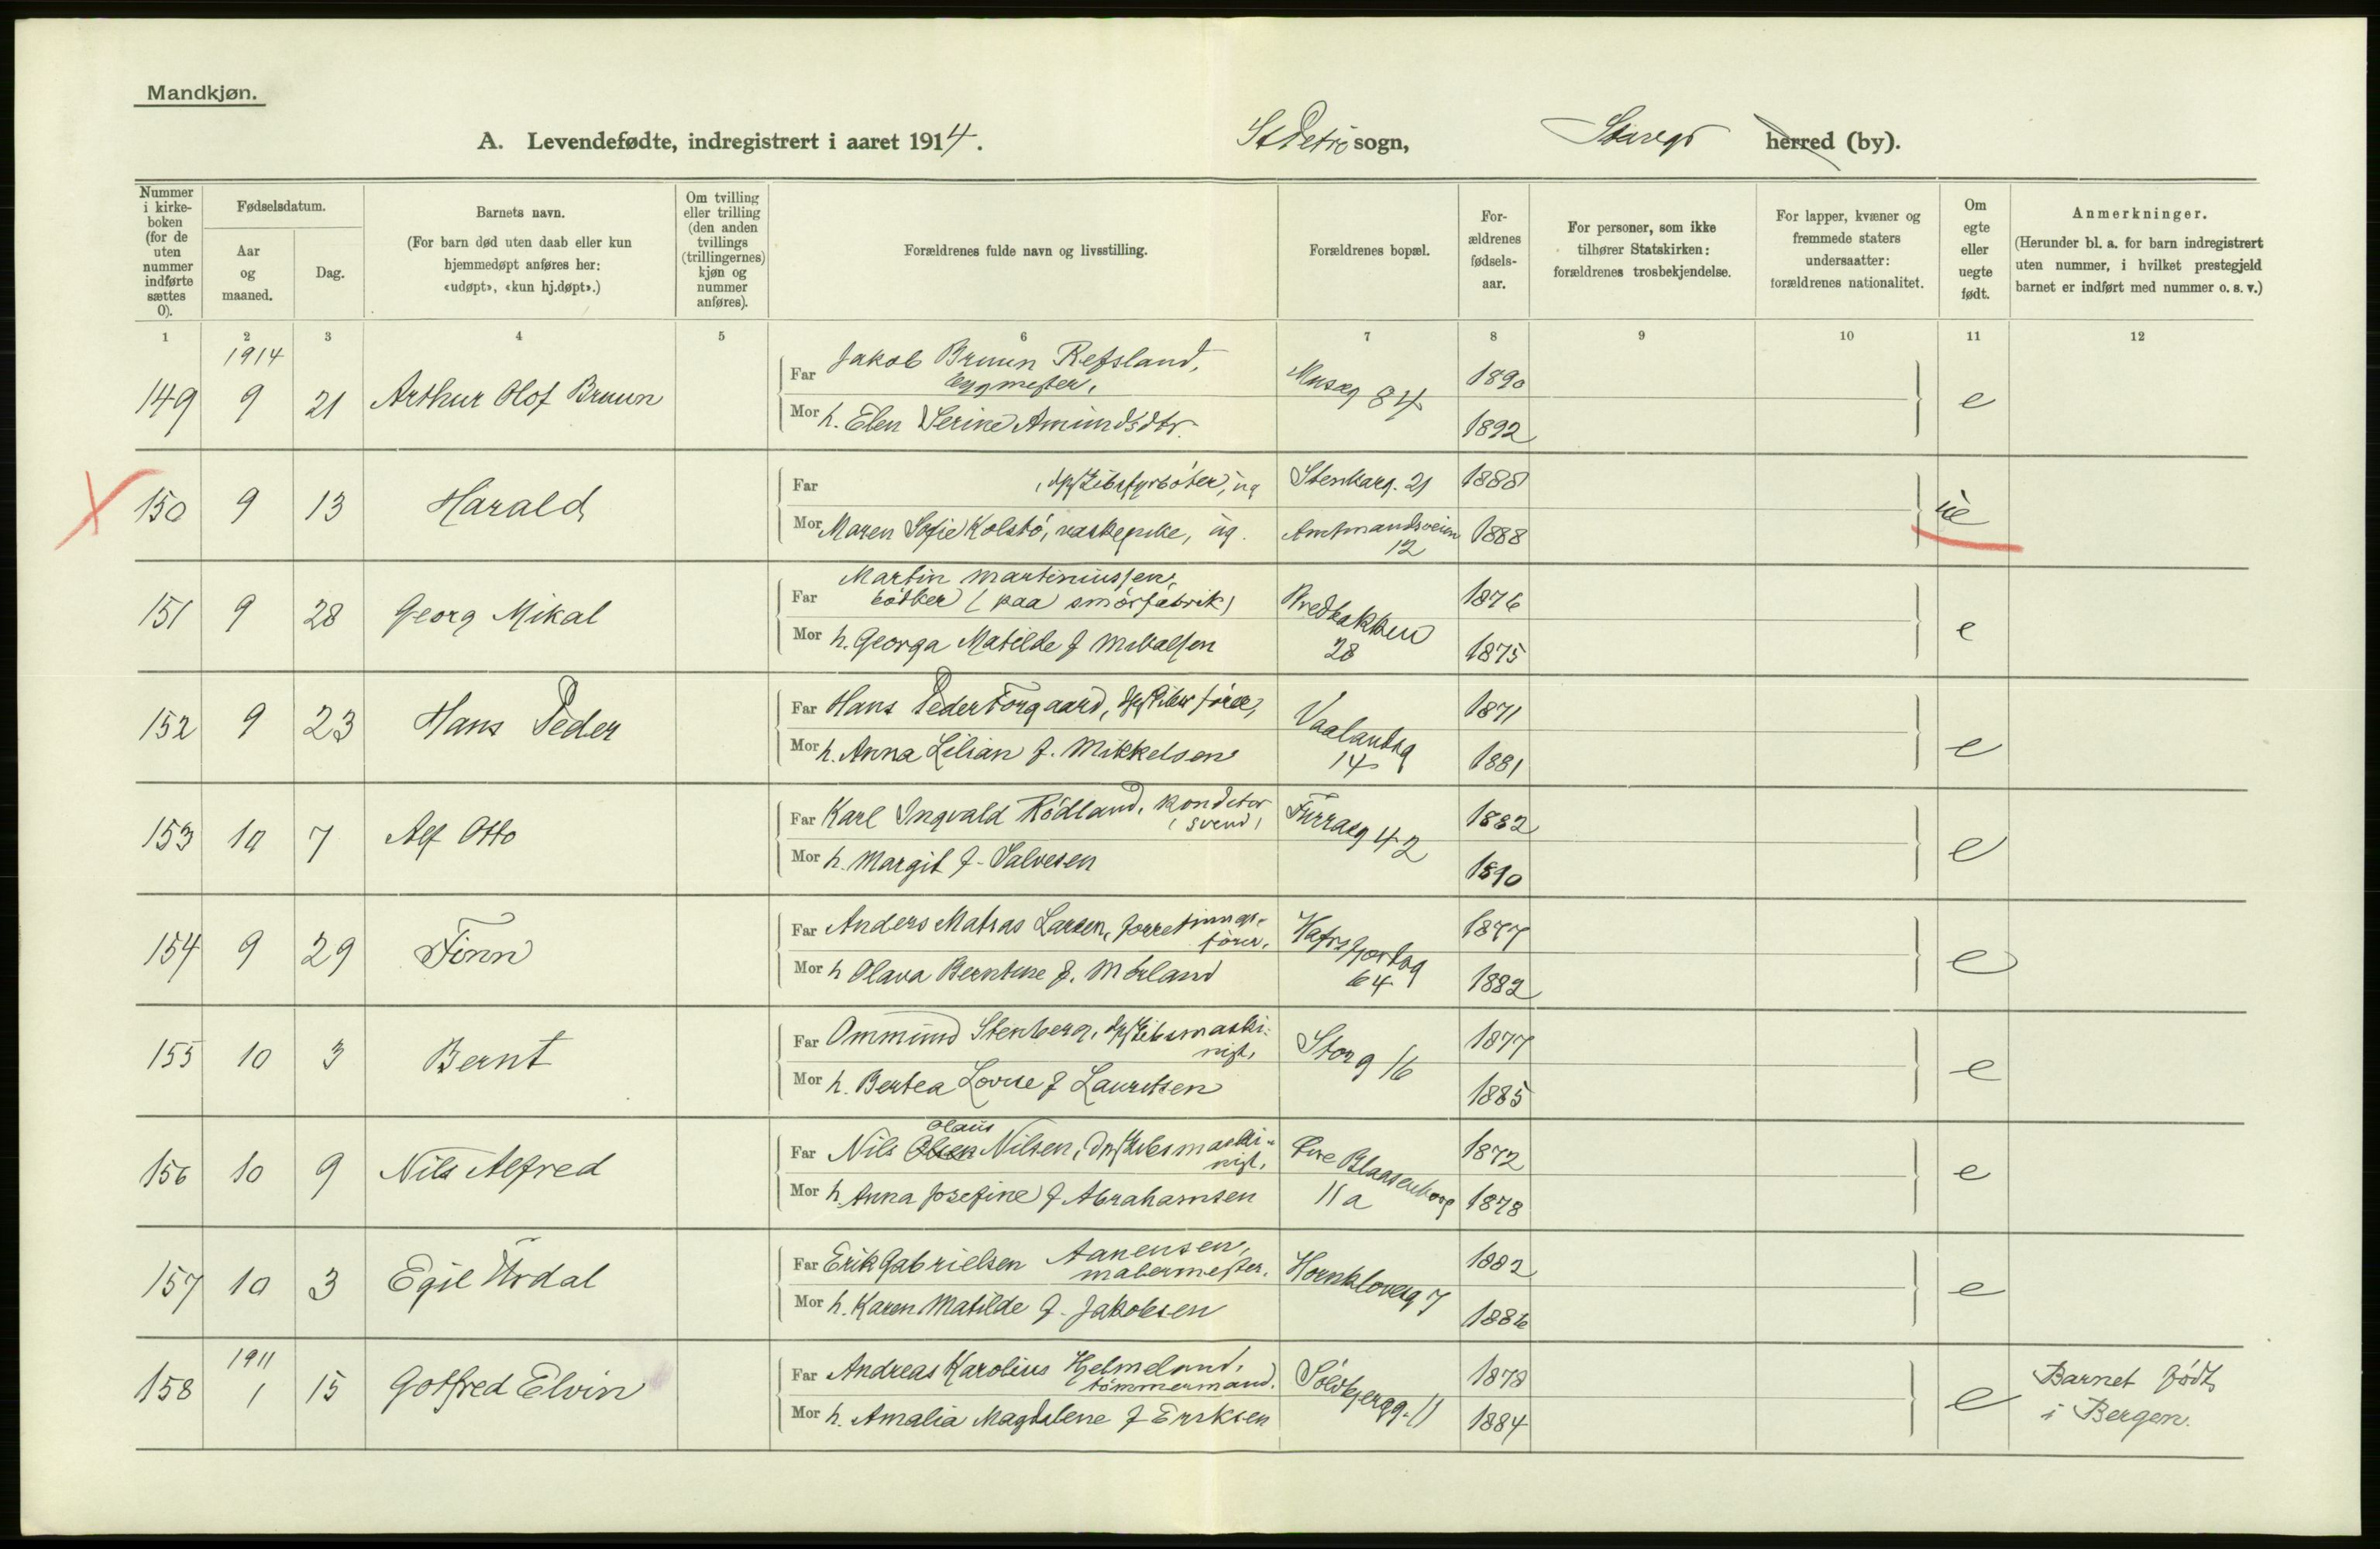 Mandkjøn.
A. Levendefødte, indregistrert i aaret 1914. St Petri sogn, Stavgr herred (by).
Nummer i kirke-boken (for de uten nummer indførte sættes 0).
Fødselsdatum.
Aar og maaned.
Dag.
Barnets navn.
(For barn død uten daab eller kun hjemmedøpt anføres her: «udøpt», «kun hj.døpt».)
Om tvilling eller trilling (den anden tvillings (trillingernes) kjøn og nummer anføres).
Forældrenes fulde navn og livsstilling.
Forældrenes bopæl.
For-ældrenes fødsels-aar.
For personer, som ikke tilhører Statskirken: forældrenes trosbekjendelse.
For lapper, kvæner og fremmede staters undersaatter: forældrenes nationalitet.
Om egte eller uegte født.
Anmerkninger.
(Herunder bl. a. for barn indregistrert uten nummer, i hvilket prestegjeld barnet er indført med nummer o. s. v.)
1 2 3 4 5 6 7 8 9 10 11 12
1914
149 9 21 Arthur Olof Bruun
Far Jakob Bruun Refsland, bygmester, Musæg 84 1890
Mor h. Elen Serine Amundsdtr. 1892 e
150 9 13 Harald
Far , dpskibsfyrbøter, ug Stenkarg. 21 1888
Mor Maren Sofie Kolstø, vaskepike, ug. Amtmandsveien 12 1888 ue
151 9 28 Georg Mikal
Far Martin Martiniussen, bøtker (paa smørfabrik) Bredbakken 28 1876
Mor h. Georga Matilde f Mikalsen 1875 e
152 9 23 Hans Peder
Far Hans Peder Torgaard, dpskibsfører, Vaalandsg 14 1871
Mor h. Anna Lilian f. Mikkelsen 1881 e
153 10 7 Alf Otto
Far Karl Ingvald Rødland, konditor (svend) Furrasg 42 1882
Mor h. Margit f. Salvesen 1890 e
154 9 29 Finn
Far Anders Matias Larsen, forretningsfører, Hafrsfjordsg 64 1877
Mor h Olava Berntine f. Mørland 1882 e
155 10 3 Bernt
Far Ommund Stenberg, dpskibsmaskinist, Storg 16 1877
Mor h. Bertea Lovise f Lauritsen 1885 e
156 10 9 Nils Alfred
Far Nils Olsen Olaus Nilsen, dpskibsmaskinist, Øvre Blaasenborg 11a 1872
Mor h. Anna Josefine f Abrahamsen 1878 e
157 10 3 Egil Årdal
Far Erik Gabrielsen Aanensen, malermester. Hornklovesg 7 1882
Mor h. Karen Matilde f. Jakobsen 1886 e
1911
158 1 15 Gotfred Elvin
Far Andreas Karolius Hjelmeland, tømmermand. Sølvbjergg. 11 1878
Mor h. Amalia Magdalene f Eriksen 1884 e Barnet født i Bergen.